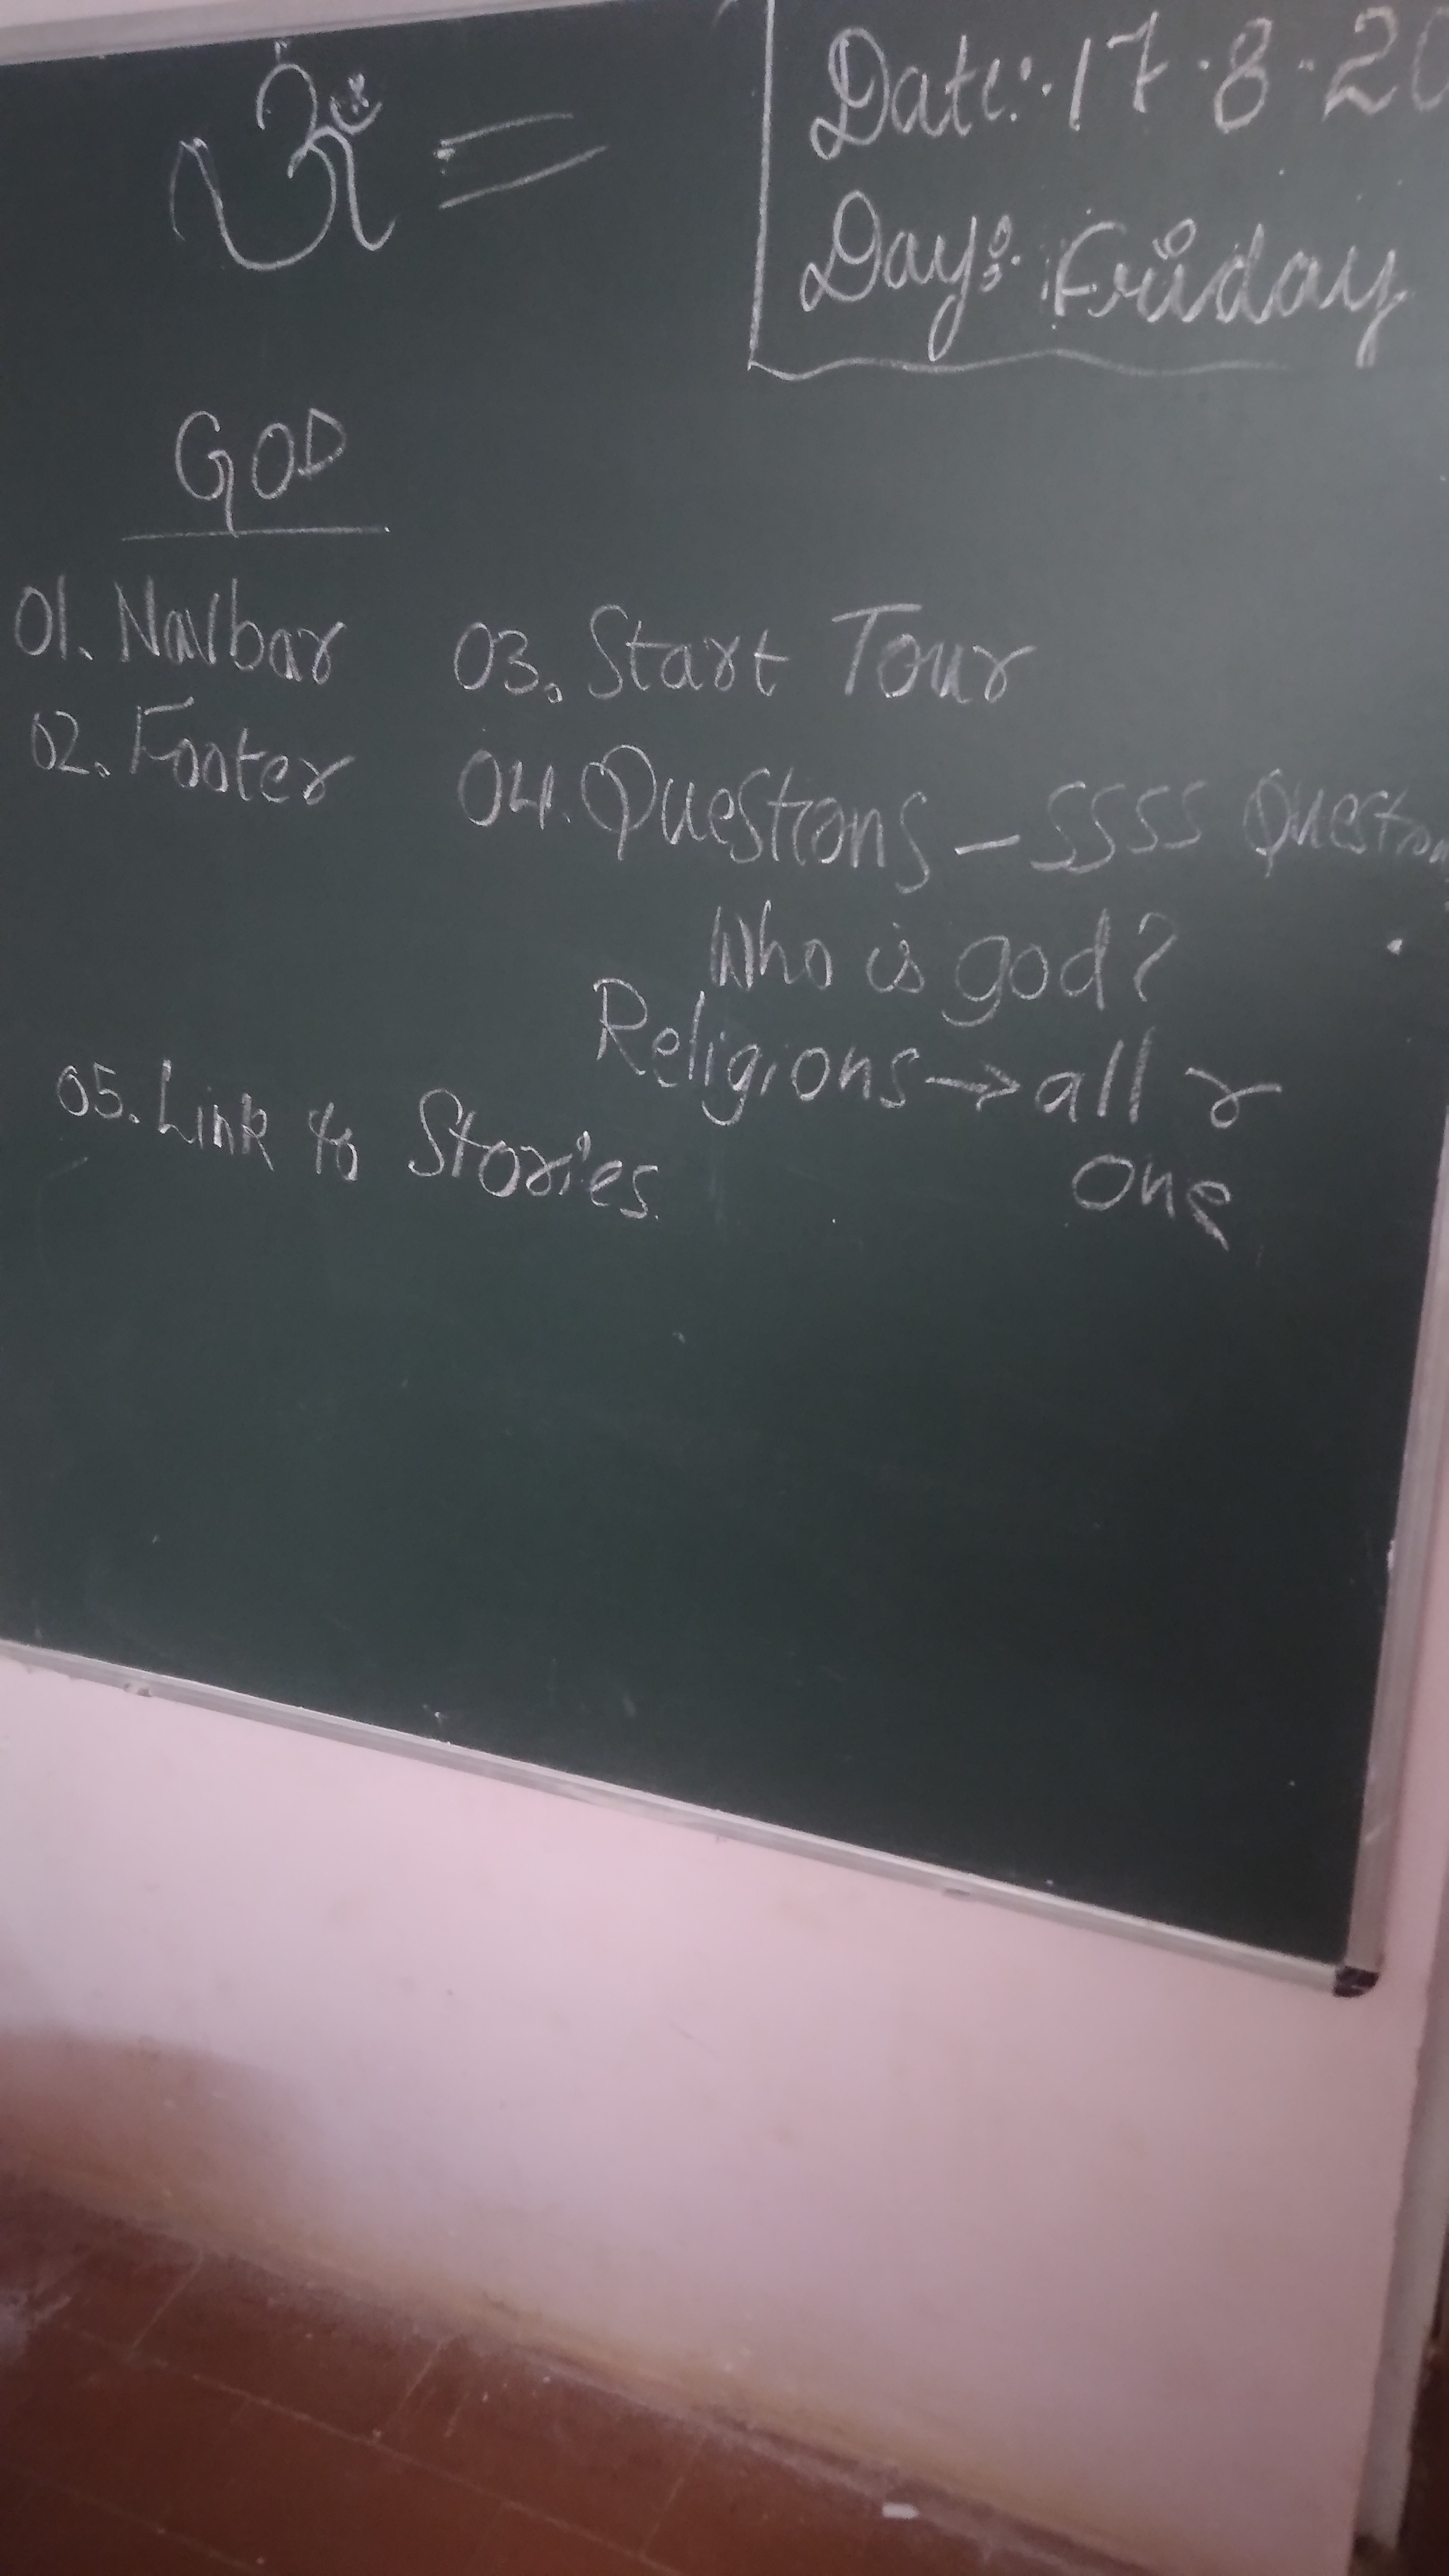 Date:- 17.8.20
Day:- Friday
GOD
01. Navbar 03. Start Tour
02. Footer 04. Questions - SSSS Question
Who is god?
Religions → all r
One
05. Link to Stories.